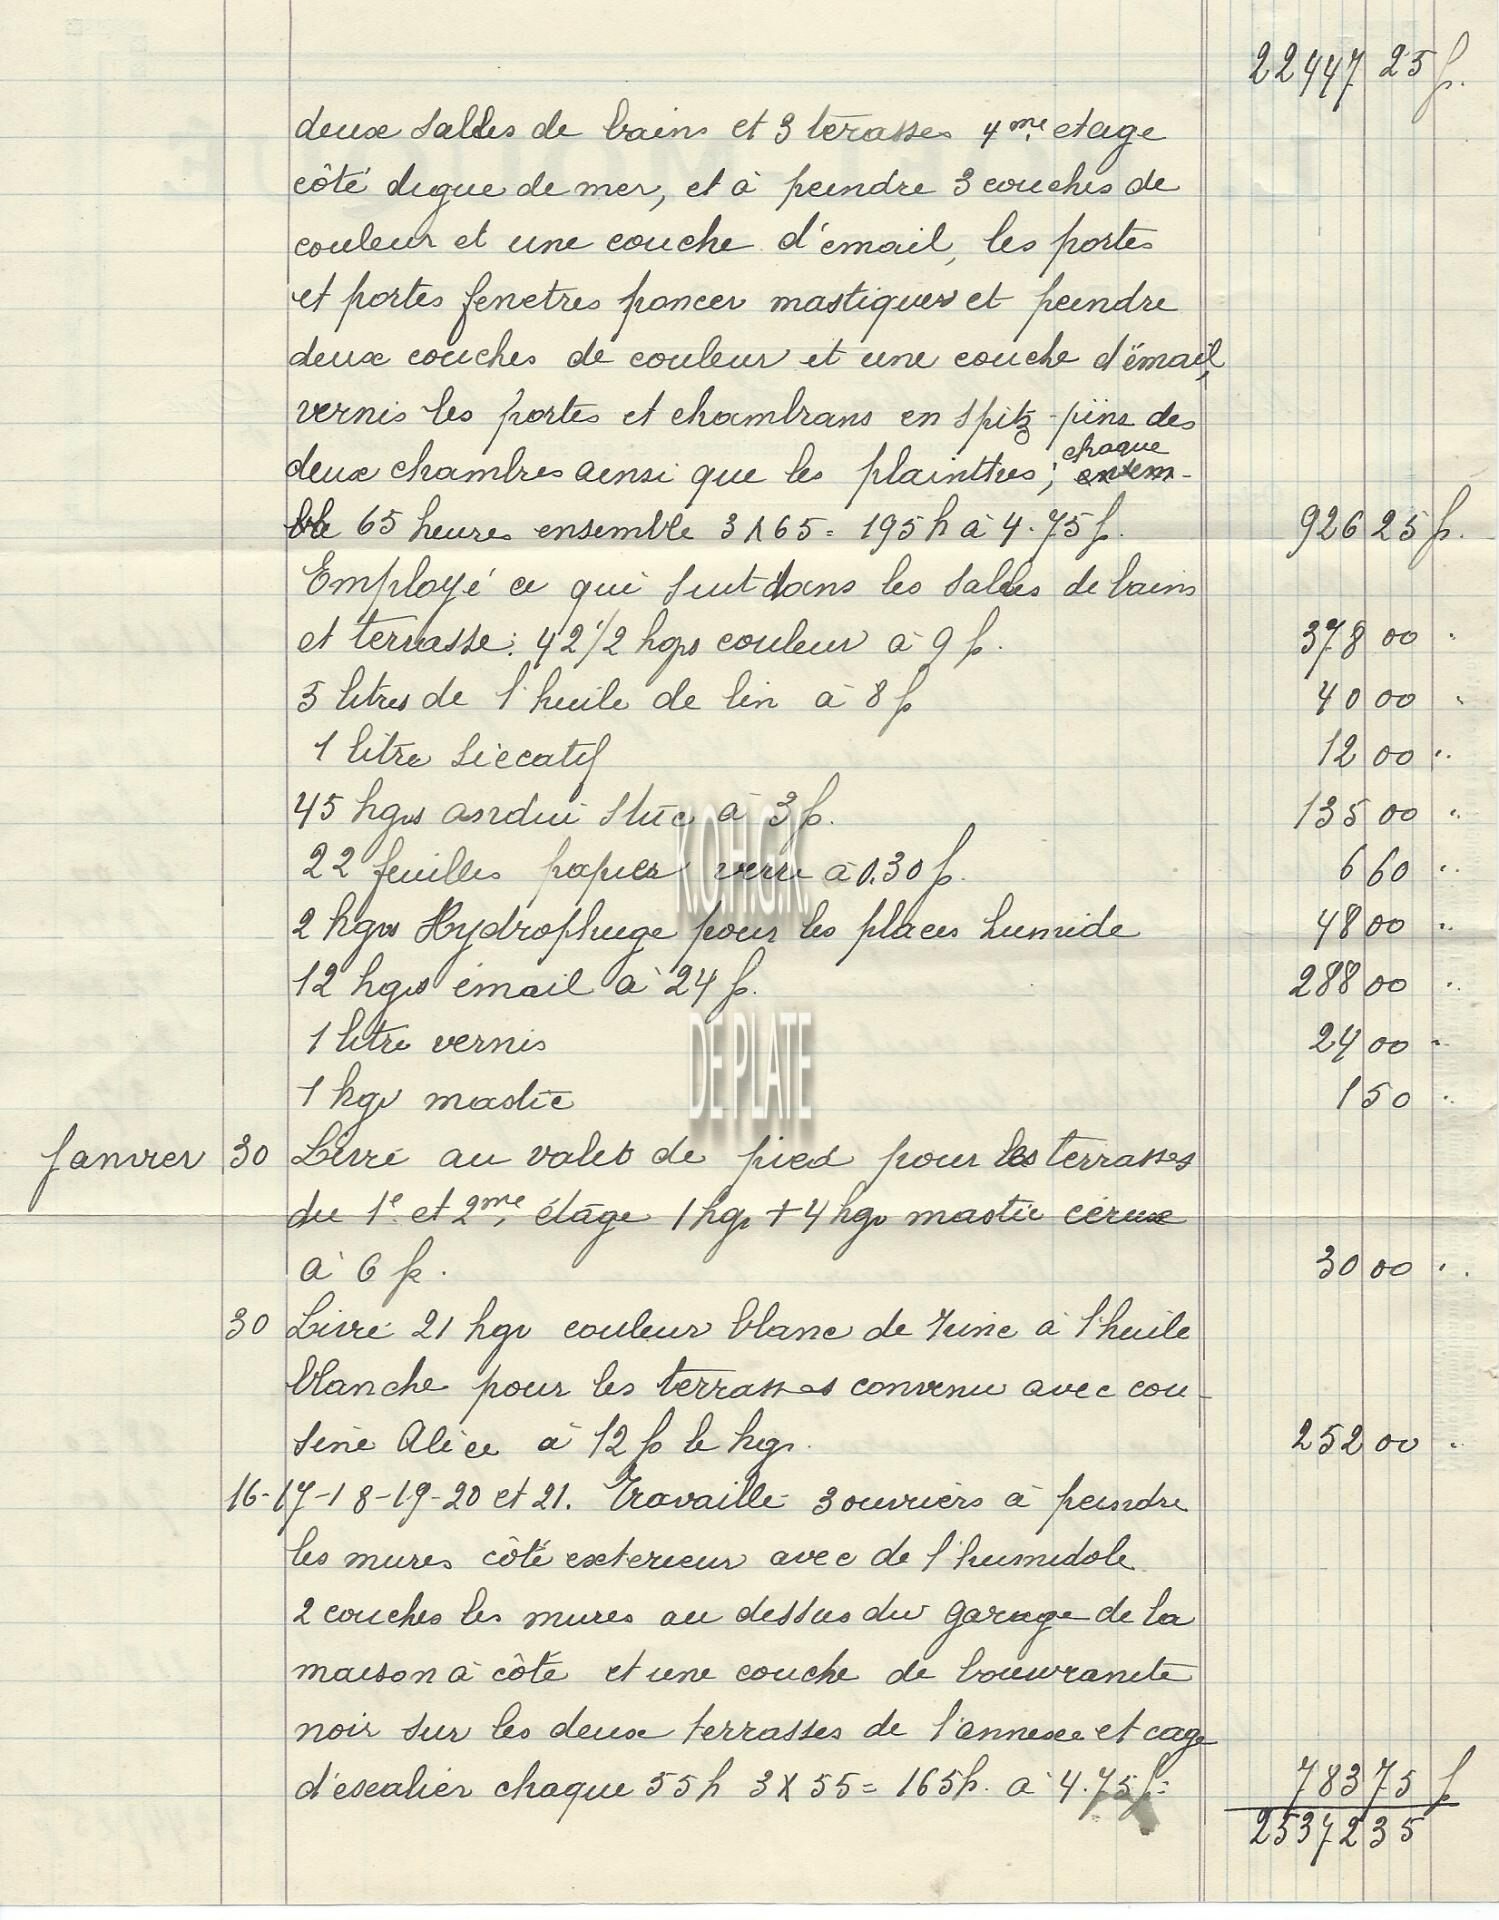 22447 25 f.
deux salles de bains et 3 terasses 4me etage
côté digue de mer, et à peindre 3 couches de
couleur et une couche d'émail, les portes
et portes fenetres poncer mastiquer et peindre
deux couches de couleur et une couche d'émail,
vernis les portes et chambrans en spitz-pins des
deux chambres ainsi que les plainttes; chaque
65 heures ensemble 3 X 65 = 195 h à 4.75 f. 926 25 f.
Employé ce qui suit dans les salles de bains
et terrasse: 42 1/2 kgs couleur à 9 f. 378 00 "
5 litres de l'huile de lin à 8 f 40 00 "
1 litre siccatif 12 00 "
45 kgs enduit stuc à 3 f. 135 00 "
22 feuilles papier verre à 0.30 f. 6 60 "
2 kgs Hydrophuge pour les places humide 48 00 "
12 kgs émail à 24 f. 288 00 "
1 litre vernis 24 00 "
1 kgr mastic 1 50 "
Janvier 30 Livré au valet de pied pour les terrasses
du 1e et 2me étage 1 kgr + 4 kgr mastic céruse
à 6 f. 30 00 "
30 Livré 21 kgr couleur blanc de zinc à l'huile
blanche pour les terrasses convenu avec cou-
sine Alice à 12 f le kgr. 252 00 "
16-17-18-19-20 et 21. Travaillé 3 ouvriers à peindre
les mures côté exterieur avec de l'humidole
2 couches les mures au dessus du garage de la
maison à côté et une couche de bouwranite
noir sur les deux terrasses de l'annexe et cage
d'escalier chaque 55 h 3 X 55 = 165 h. à 4.75 f = 783 75 f
25372 35
K.O.H.G.K.
DE PLATE